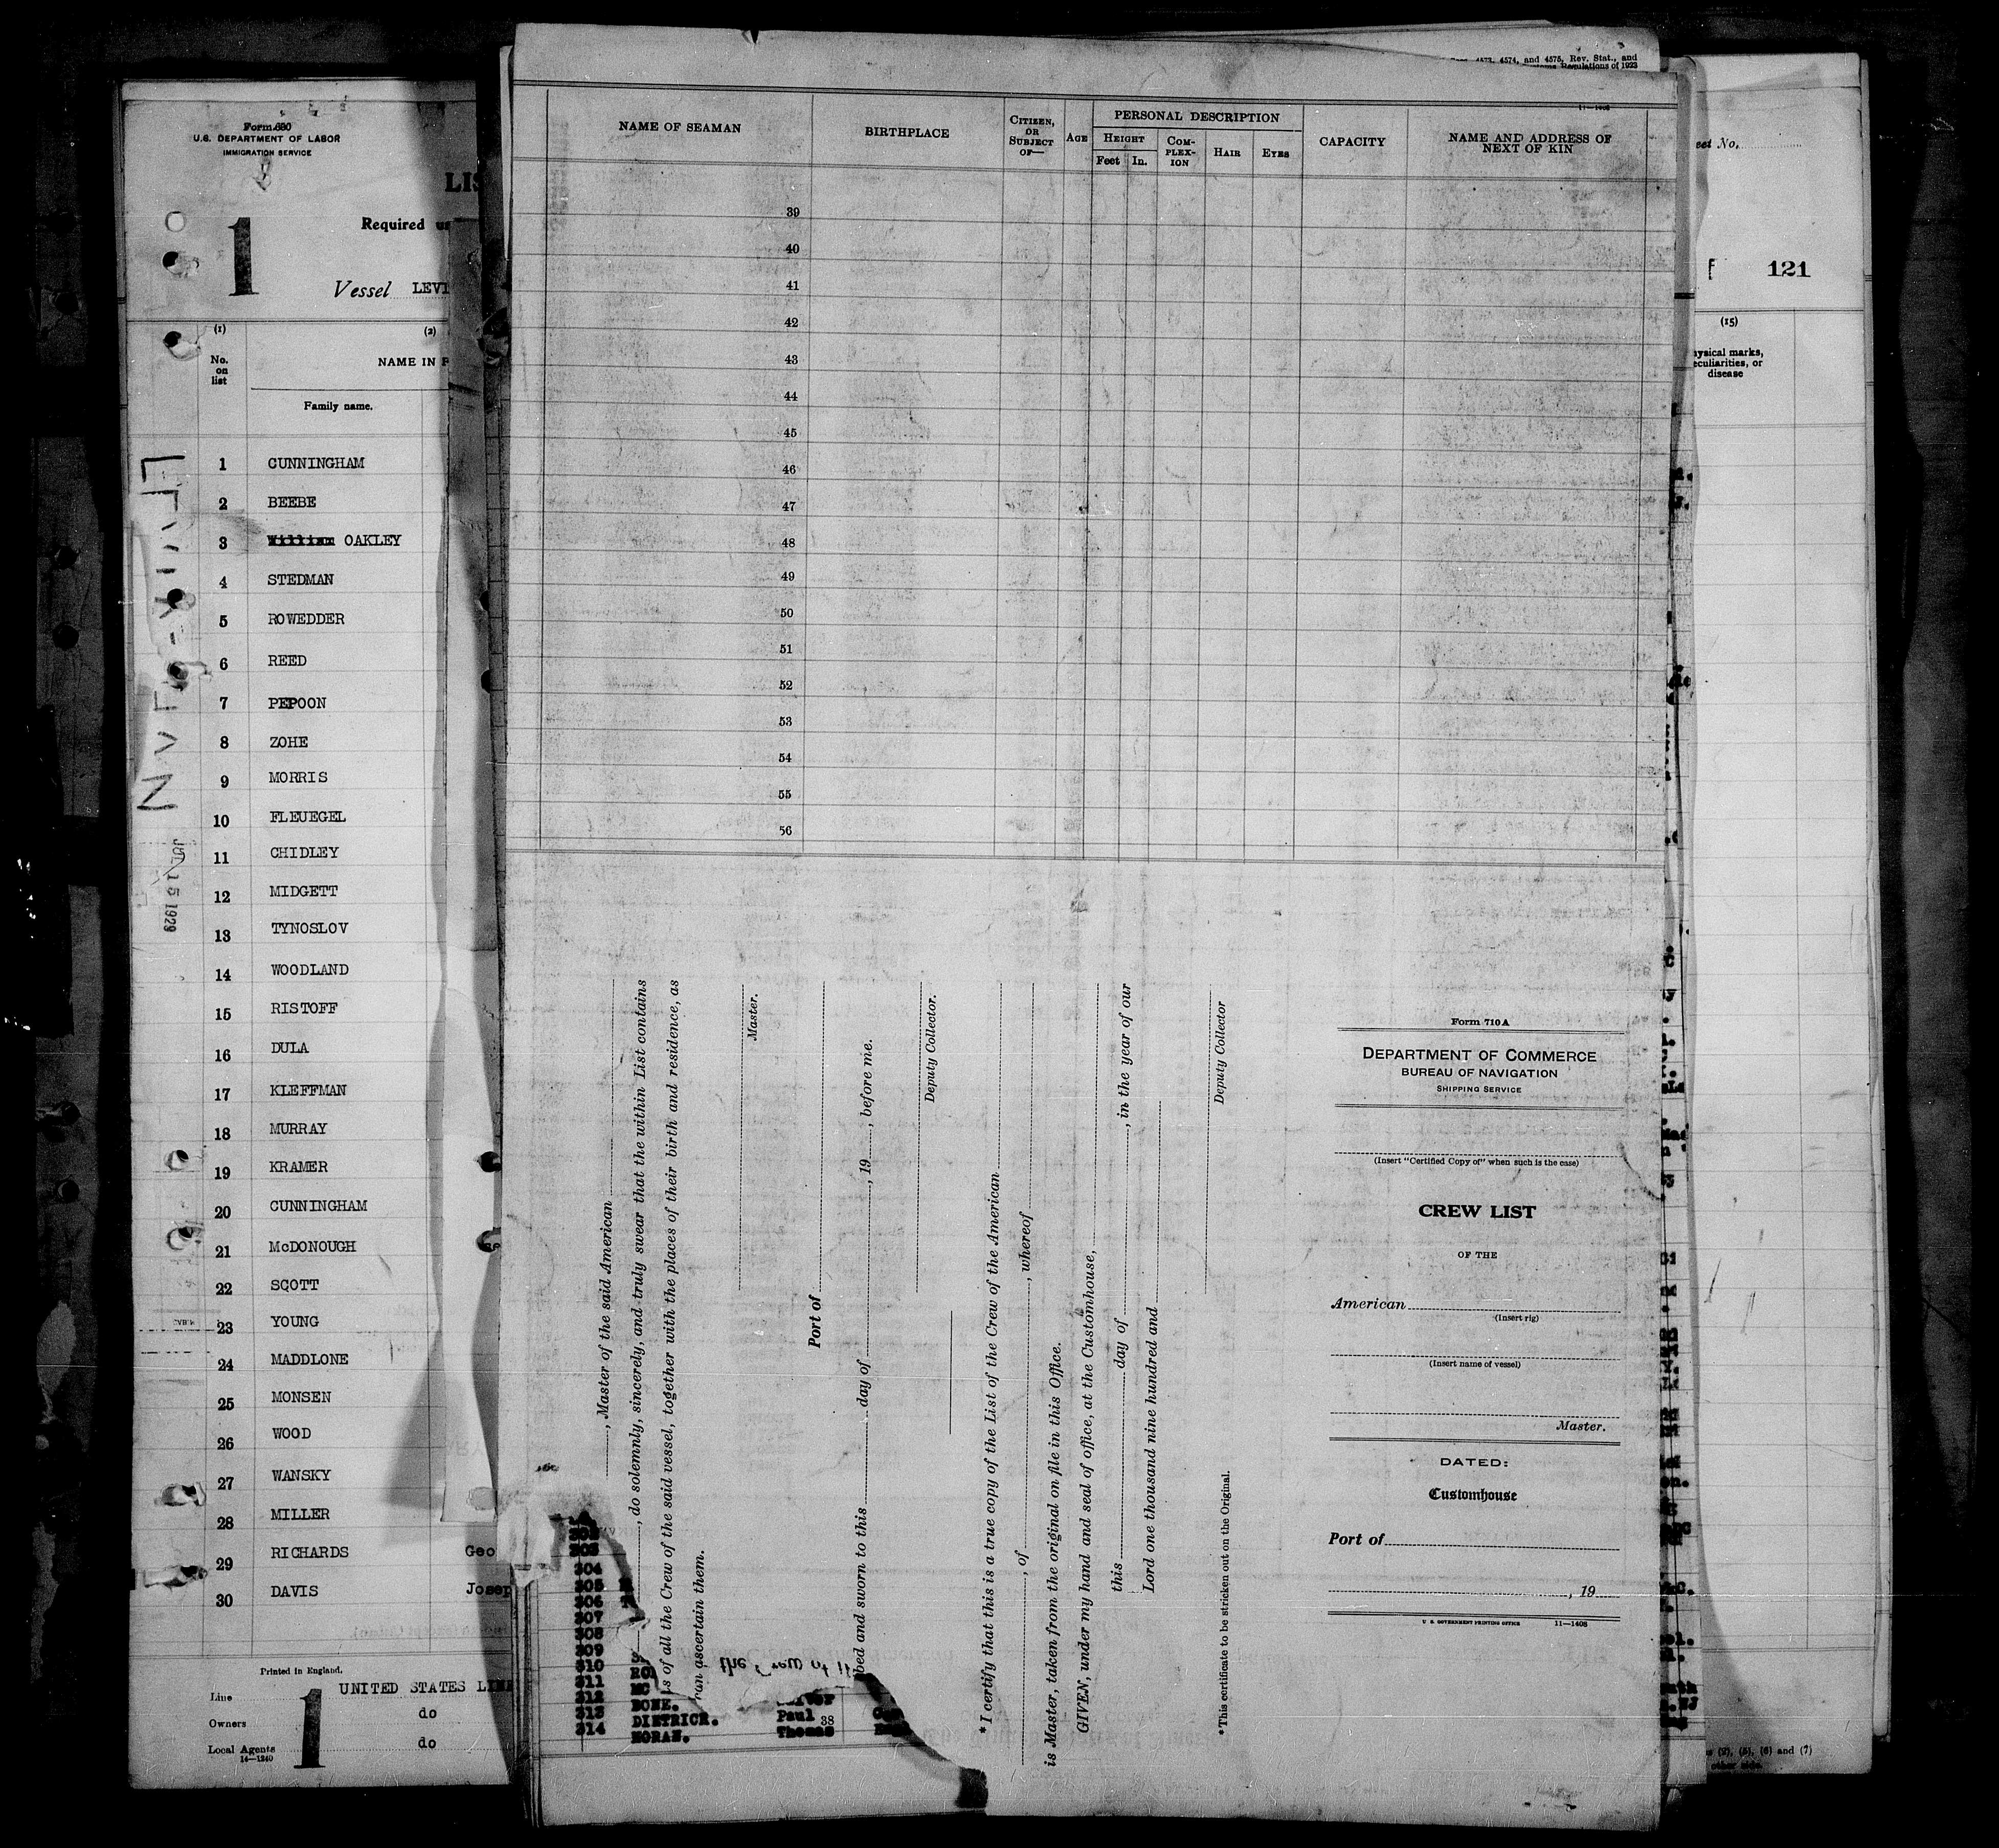 Form 680
U.S. DEPARTMENT OF LABOR
IMMIGRATION SERVICE
LIS
Required un
1
Vessel LEVI
(1) (2)
No. on list
NAME IN F
Family name.
1 CUNNINGHAM
2 BEEBE
3 William OAKLEY
4 STEDMAN
5 ROWEDDER
6 REED
7 PEPOON
8 ZOHE
9 MORRIS
10 FLEUEGEL
11 CHIDLEY
12 MIDGETT
13 TYNOSLOV
14 WOODLAND
15 RISTOFF
16 DULA
17 KLEFFMAN
18 MURRAY
19 KRAMER
20 CUNNINGHAM
21 McDONOUGH
22 SCOTT
23 YOUNG
24 MADDLONE
25 MONSEN
26 WOOD
27 WANSKY
28 MILLER
29 RICHARDS Geo
30 DAVIS Josep
JUL 15 1929
Printed in England.
Line UNITED STATES LINE
Owners do
Local Agents do
14—1240
1
4573, 4574, and 4575, Rev. Stat., and
Regulations of 1923
11—1408
NAME OF SEAMAN
BIRTHPLACE
CITIZEN, OR SUBJECT OF—
AGE
PERSONAL DESCRIPTION
HEIGHT
Feet In.
COM-PLEX-ION
HAIR
EYES
CAPACITY
NAME AND ADDRESS OF NEXT OF KIN
39
40
41
42
43
44
45
46
47
48
49
50
51
52
53
54
55
56
, Master of the said American
, do solemnly, sincerely, and truly swear that the within List contains
s of all the Crew of the said vessel, together with the places of their birth and residence, as
can ascertain them.
Master.
Port of
bed and sworn to this day of , 19 , before me.
Deputy Collector.
*I certify that this is a true copy of the List of the Crew of the American
, of , whereof
is Master, taken from the original on file in this Office.
GIVEN, under my hand and seal of office, at the Customhouse,
this day of , in the year of our
Lord one thousand nine hundred and
Deputy Collector
*This certificate to be stricken out on the Original.
Form 710A
DEPARTMENT OF COMMERCE
BUREAU OF NAVIGATION
SHIPPING SERVICE
(Insert "Certified Copy of" when such is the case)
CREW LIST
OF THE
American
(Insert rig)
(Insert name of vessel)
Master.
DATED:
Customhouse
Port of
, 19
U. S. GOVERNMENT PRINTING OFFICE 11—1408
303
304
305
306
307
308
309
310
311 MC
312 BONE.
313 DIETRICH. Paul 38
314 HORAN. Thomas
the Crew of
eet No.
121
(15)
ysical marks,
eculiarities, or
disease
(2), (5), (6) and (7)
other side.